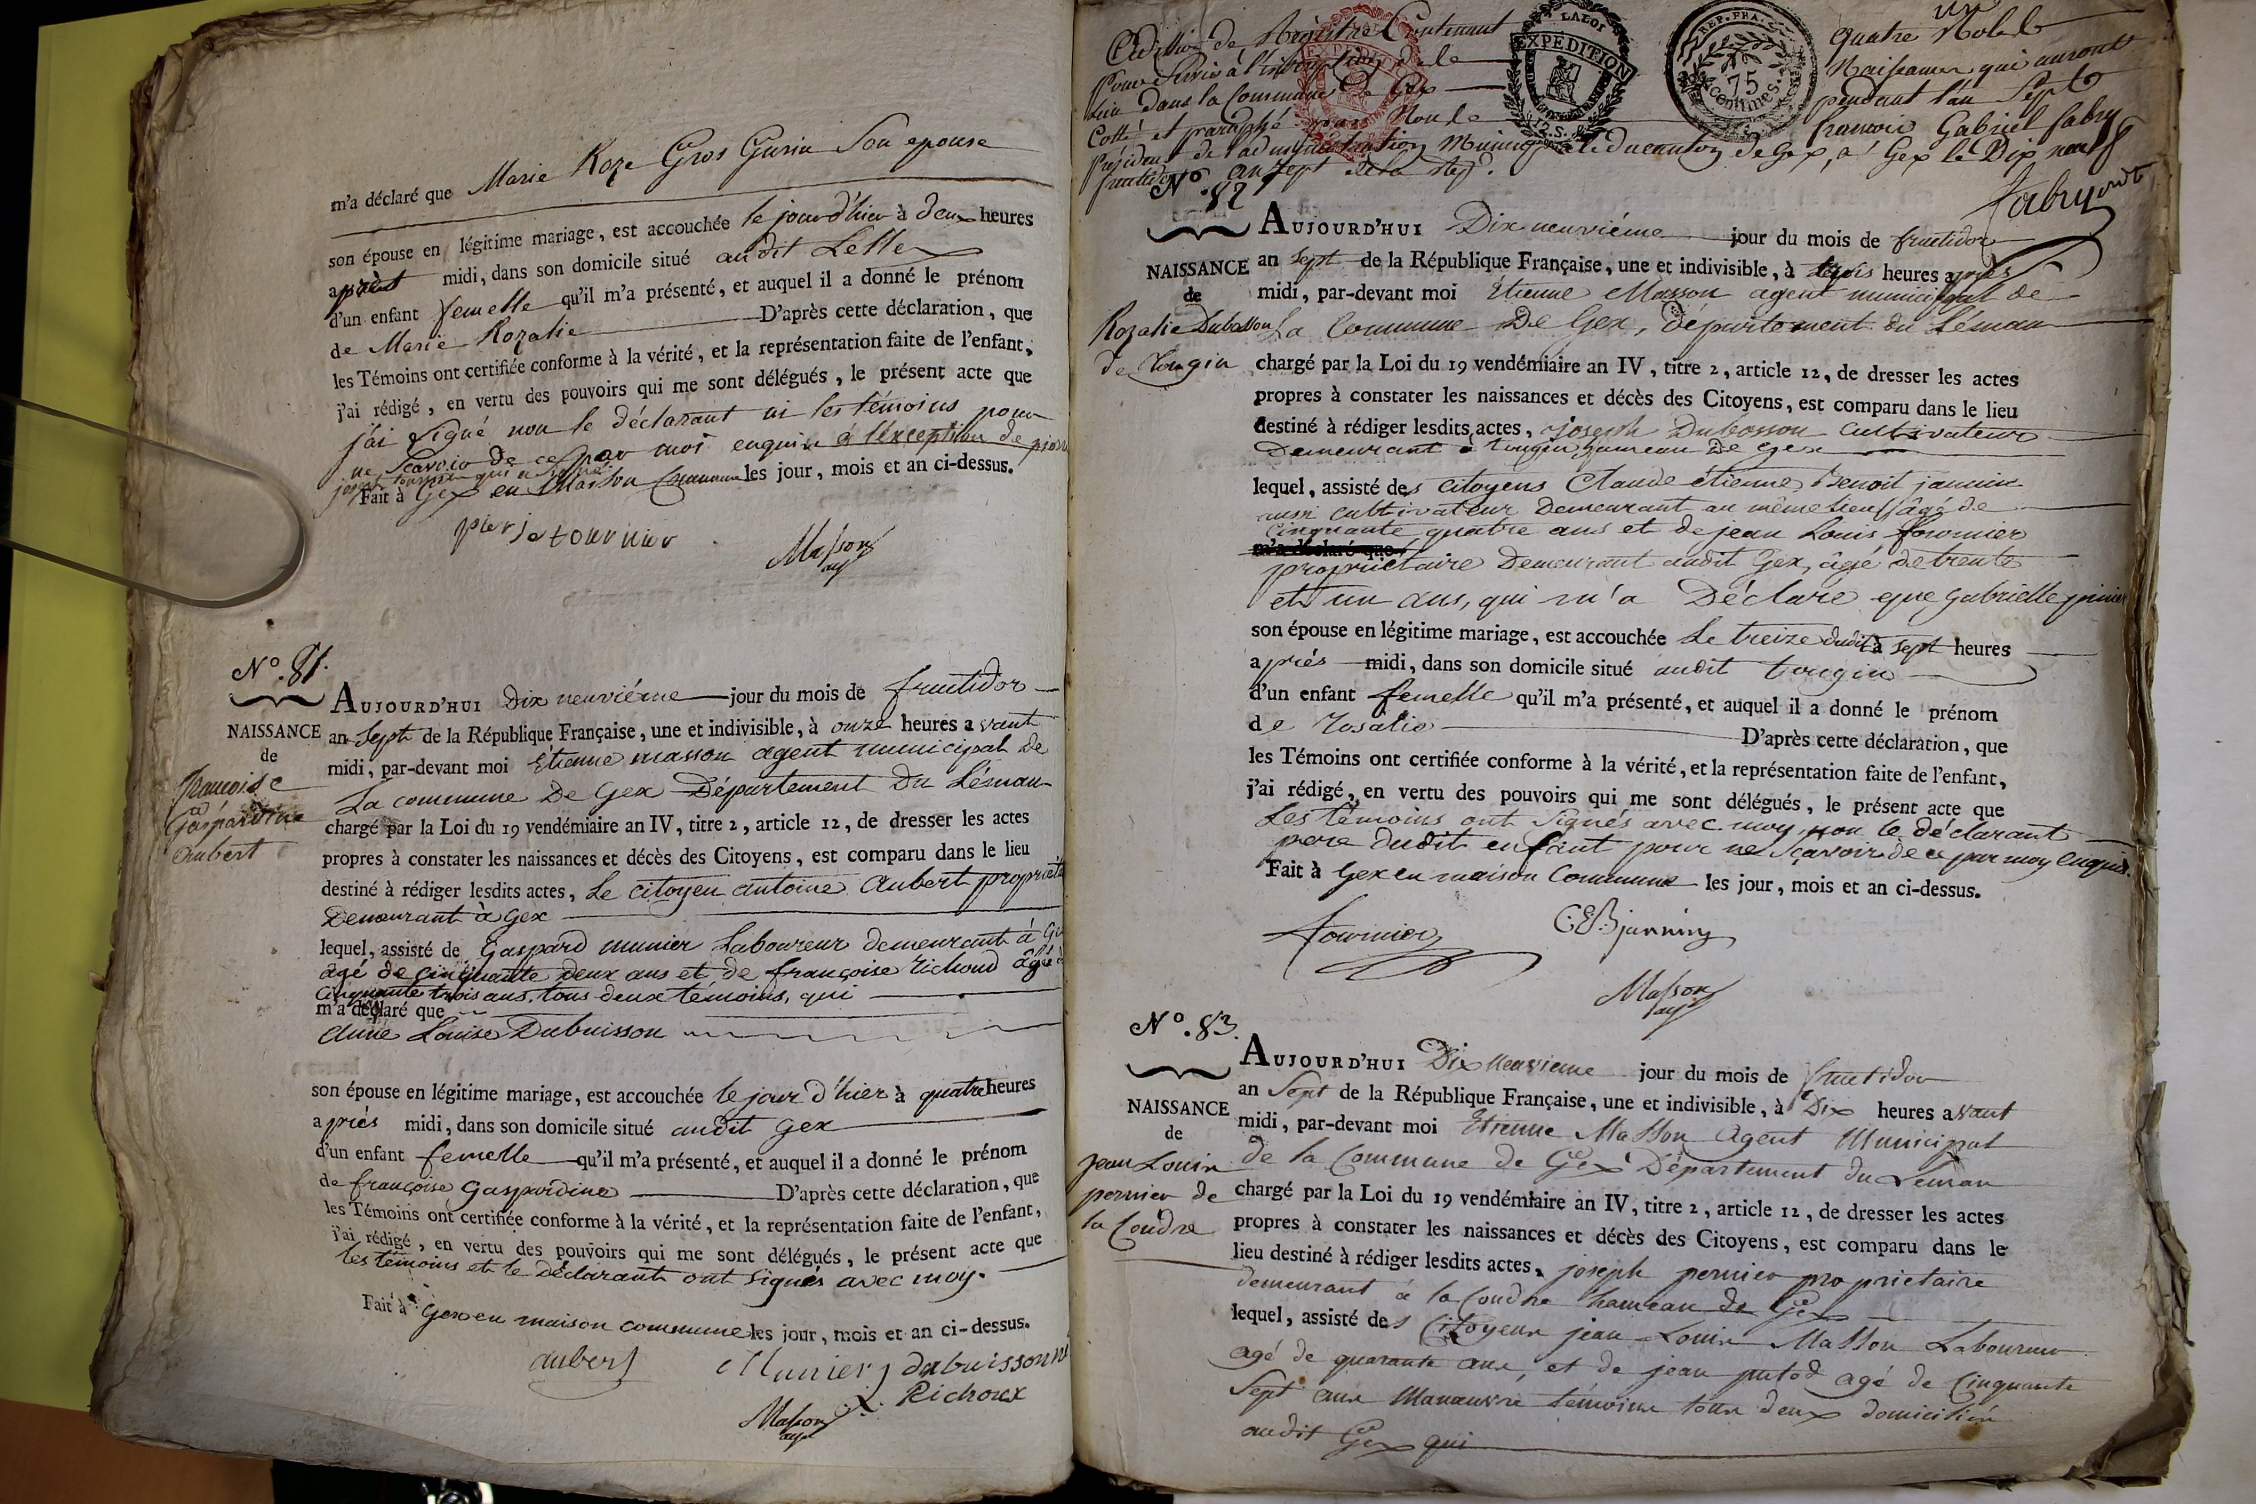 m'a déclaré que Marie Roze Gros Gurin Son epouse
son épouse en légitime mariage, est accouchée le jour d'hier à deux heures
après midi, dans son domicile situé audit
d'un enfant femelle qu'il m'a présenté, et auquel il a donné le prénom
de Marie Rozalie D'après cette déclaration, que
les Témoins ont certifiée conforme à la vérité, et la représentation faite de l'enfant,
j'ai rédigé, en vertu des pouvoirs qui me sont délégués, le présent acte que
j'ai signé non le déclarant ni les témoins pour
ne Scavoir de ce par moi enquis à l'exception de
qui a signé
Fait à Gex en Maison Commune les jour, mois et an ci-dessus.
tournier
Masson
ag
N.º 81.
NAISSANCE
de
françoise
Gaspardine
aubert
AUJOURD'HUI Dix neuviéme jour du mois de fructidor
an Sept de la République Française, une et indivisible, à onze heures avant
midi, par-devant moi Etienne masson agent municipal de
La commune De Gex Département Du Léman
chargé par la Loi du 19 vendémiaire an IV, titre 2, article 12, de dresser les actes
propres à constater les naissances et décès des Citoyens, est comparu dans le lieu
destiné à rédiger lesdits actes, Le citoyen antoine aubert propriet
Demeurant à Gex
lequel, assisté de Gaspard munier Laboureur demeurant à
âgé de cinquante deux ans et de françoise Richoud âgé
cinquante trois ans, tous deux témoins, qui
m'a déclaré que
Anne Louise Dubuisson
son épouse en légitime mariage, est accouchée le jour d'hier à quatre heures
après midi, dans son domicile situé audit Gex
d'un enfant femelle qu'il m'a présenté, et auquel il a donné le prénom
de françoise Gaspardine D'après cette déclaration, que
les Témoins ont certifiée conforme à la vérité, et la représentation faite de l'enfant,
j'ai rédigé, en vertu des pouvoirs qui me sont délégués, le présent acte que
les témoins et le Déclarant ont signés avec moy.
Fait à Gex en maison commune les jour, mois et an ci-dessus.
aubert Munier dubuisson
Richoux
Masson
ag
un
Addition de Régistre Contenant quatre Rôles
Pour Servir à l'inscription de la Naissances qui auront
Lieu dans la Commune de Gex pendant l'an Sept
Cotté et paraphé par Nous françois Gabriel fabry
Président de l'administration Municipale du canton de Gex, a Gex le Dix neuf
fructidor an sept de la Rep.
EXPÉDITION
12.S.
REP. FRA.
75
CENTIMES.
fabry
N.º 82
NAISSANCE
de
Rozalie Dubosson
de Tougin
AUJOURD'HUI Dix neuviéme jour du mois de fructidor
an sept de la République Française, une et indivisible, à trois heures après
midi, par-devant moi Etienne Masson agent municipal de
La commune De Gex, département du Léman
chargé par la Loi du 19 vendémiaire an IV, titre 2, article 12, de dresser les actes
propres à constater les naissances et décès des Citoyens, est comparu dans le lieu
destiné à rédiger lesdits actes, joseph Dubosson cultivateur
Demeurant à tougin hameau De Gex
lequel, assisté des citoyens Claude étienne Benoit jannin
aussi cultivateur Demeurant au même lieu âgé de
cinquante quatre ans et de jean Louis fournier
m'a déclaré que
propriétaire Demeurant audit Gex, âgé de trente
et un ans, qui m'a Déclaré que Gabrielle
son épouse en légitime mariage, est accouchée Le treize dudit à sept heures
après midi, dans son domicile situé audit tougin
d'un enfant femelle qu'il m'a présenté, et auquel il a donné le prénom
de rosalie D'après cette déclaration, que
les Témoins ont certifiée conforme à la vérité, et la représentation faite de l'enfant,
j'ai rédigé, en vertu des pouvoirs qui me sont délégués, le présent acte que
Les témoins ont signés avec moy, non le déclarant
pere dudit enfant pour ne Sçavoir de ce par moy enquis.
Fait à Gex en maison Commune les jour, mois et an ci-dessus.
fournier C.E.B jannin
Masson
ag
N.º 83.
NAISSANCE
de
jean Louis
pernier de
la Coudre
AUJOURD'HUI Dix neuvieme jour du mois de fructidor
an Sept de la République Française, une et indivisible, à Dix heures avant
midi, par-devant moi Etienne Masson Agent Municipal
de la Commune de Gex Département du Leman
chargé par la Loi du 19 vendémiaire an IV, titre 2, article 12, de dresser les actes
propres à constater les naissances et décès des Citoyens, est comparu dans le
lieu destiné à rédiger lesdits actes, joseph pernier proprietaire
demeurant à la Coudre hameau de Gex
lequel, assisté des Citoyens jean Louis Masson Laboureur
agé de quarante ans, et de jean putod agé de Cinquante
Sept ans Manœuvre témoins tous deux domiciliés
audit Gex qui